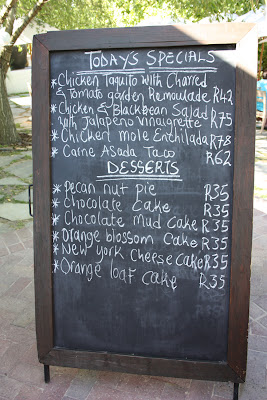 TODAYS SPECIALS
* Chicken Taquito with Charred
& Tomato garden Remoulade R42
* Chicken & Blackbean Salad
with Jalapeno Vinaigrette R75
* Chicken mole Enthilada R78
* Carne Asada Taco R62
DESSERTS
* Pecan nut pie R35
* Chocolate Cake R35
* Chocolate Mud Cake R35
* Orange blossom Cake R35
* New York Cheese Cake R35
* Orange loaf Cake R35